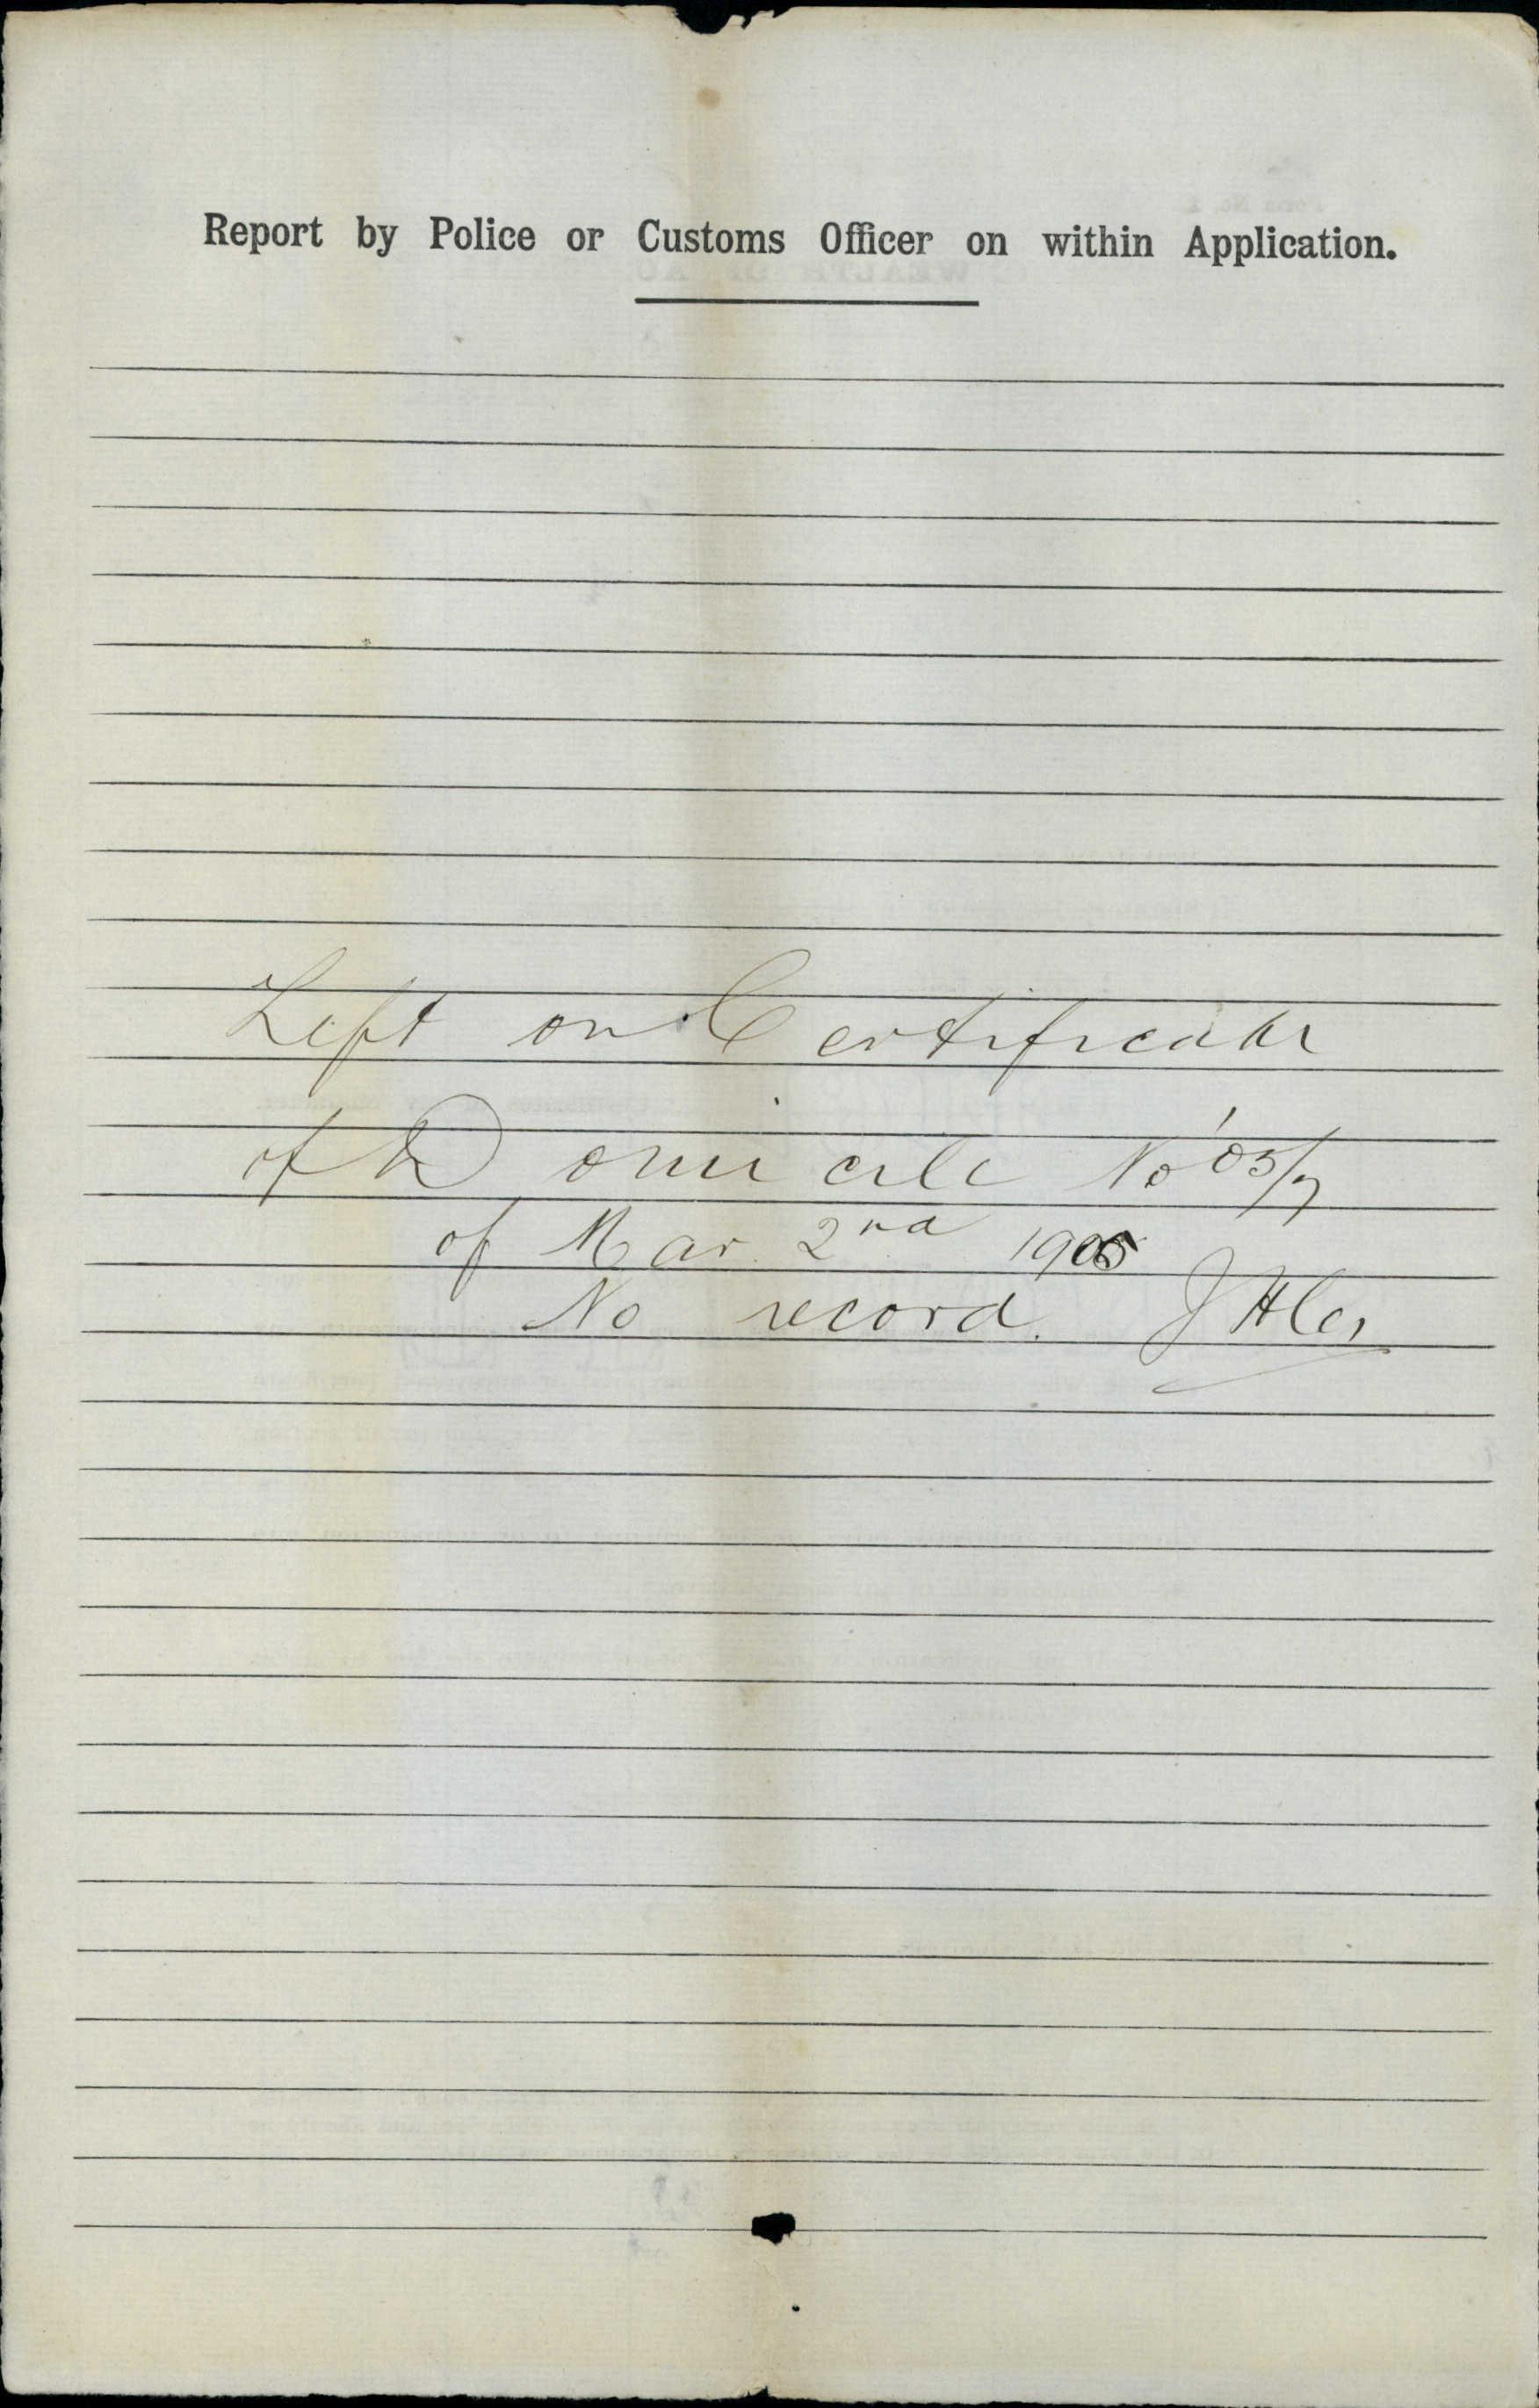 Report by Police or Customs Officer on within Application.
Left on Certificate
of Domicile No '05/7
of Mar. 2nd 1905
No record.